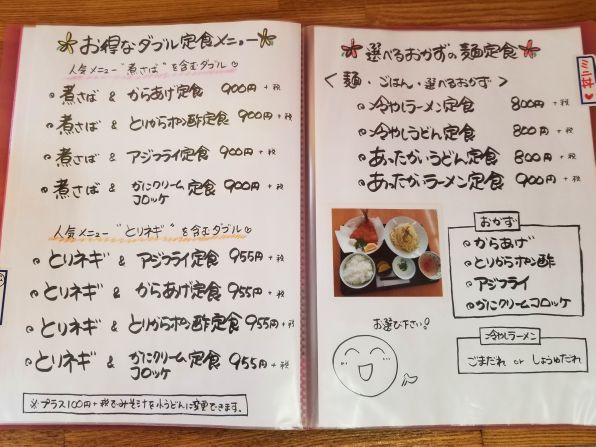 お得なダブル定食メニュー
人気メニュー"煮さば"を含むダブル
煮さば & からあげ定食 900円+税
煮さば & とりからポン酢定食 900円+税
煮さば & アジフライ定食 900円+税
煮さば & かにクリームコロッケ定食 900円+税
人気メニュー"とりネギ"を含むダブル
とりネギ & アジフライ定食 955円+税
とりネギ & からあげ定食 955円+税
とりネギ & とりからポン酢定食 955円+税
とりネギ & かにクリームコロッケ定食 955円+税
※プラス100円+税でみそ汁を小うどんに変更できます。
選べるおかずの麺定食
〈麺・ごはん・選べるおかず〉
冷やしラーメン定食 800円+税
冷やしうどん定食 800円+税
あったかいうどん定食 800円+税
あったかいラーメン定食 900円+税
おかず
からあげ
とりからポン酢
アジフライ
かにクリームコロッケ
お選び下さい?
冷やしラーメン
ごまだれ or しょうゆだれ
ミニ丼